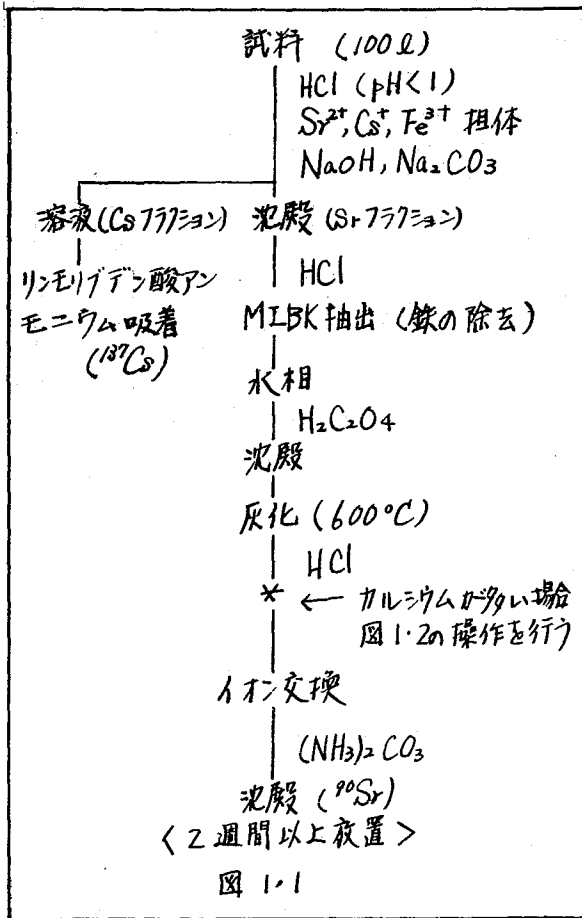 試料 (100ℓ)
HCl (pH<1)
Sr²⁺, Cs⁺, Fe³⁺ 担体
NaOH, Na₂CO₃
溶液(Csフラクション) 沈殿(Srフラクション)
HCl
リンモリブデン酸アン
モニウム吸着
(¹³⁷Cs)
MIBK抽出 (鉄の除去)
水相
H₂C₂O₄
沈殿
灰化 (600°C)
HCl
* ← カルシウムが多い場合
図1・2の操作を行う
イオン交換
(NH₃)₂CO₃
沈殿 (⁹⁰Sr)
<2週間以上放置>
図 1・1